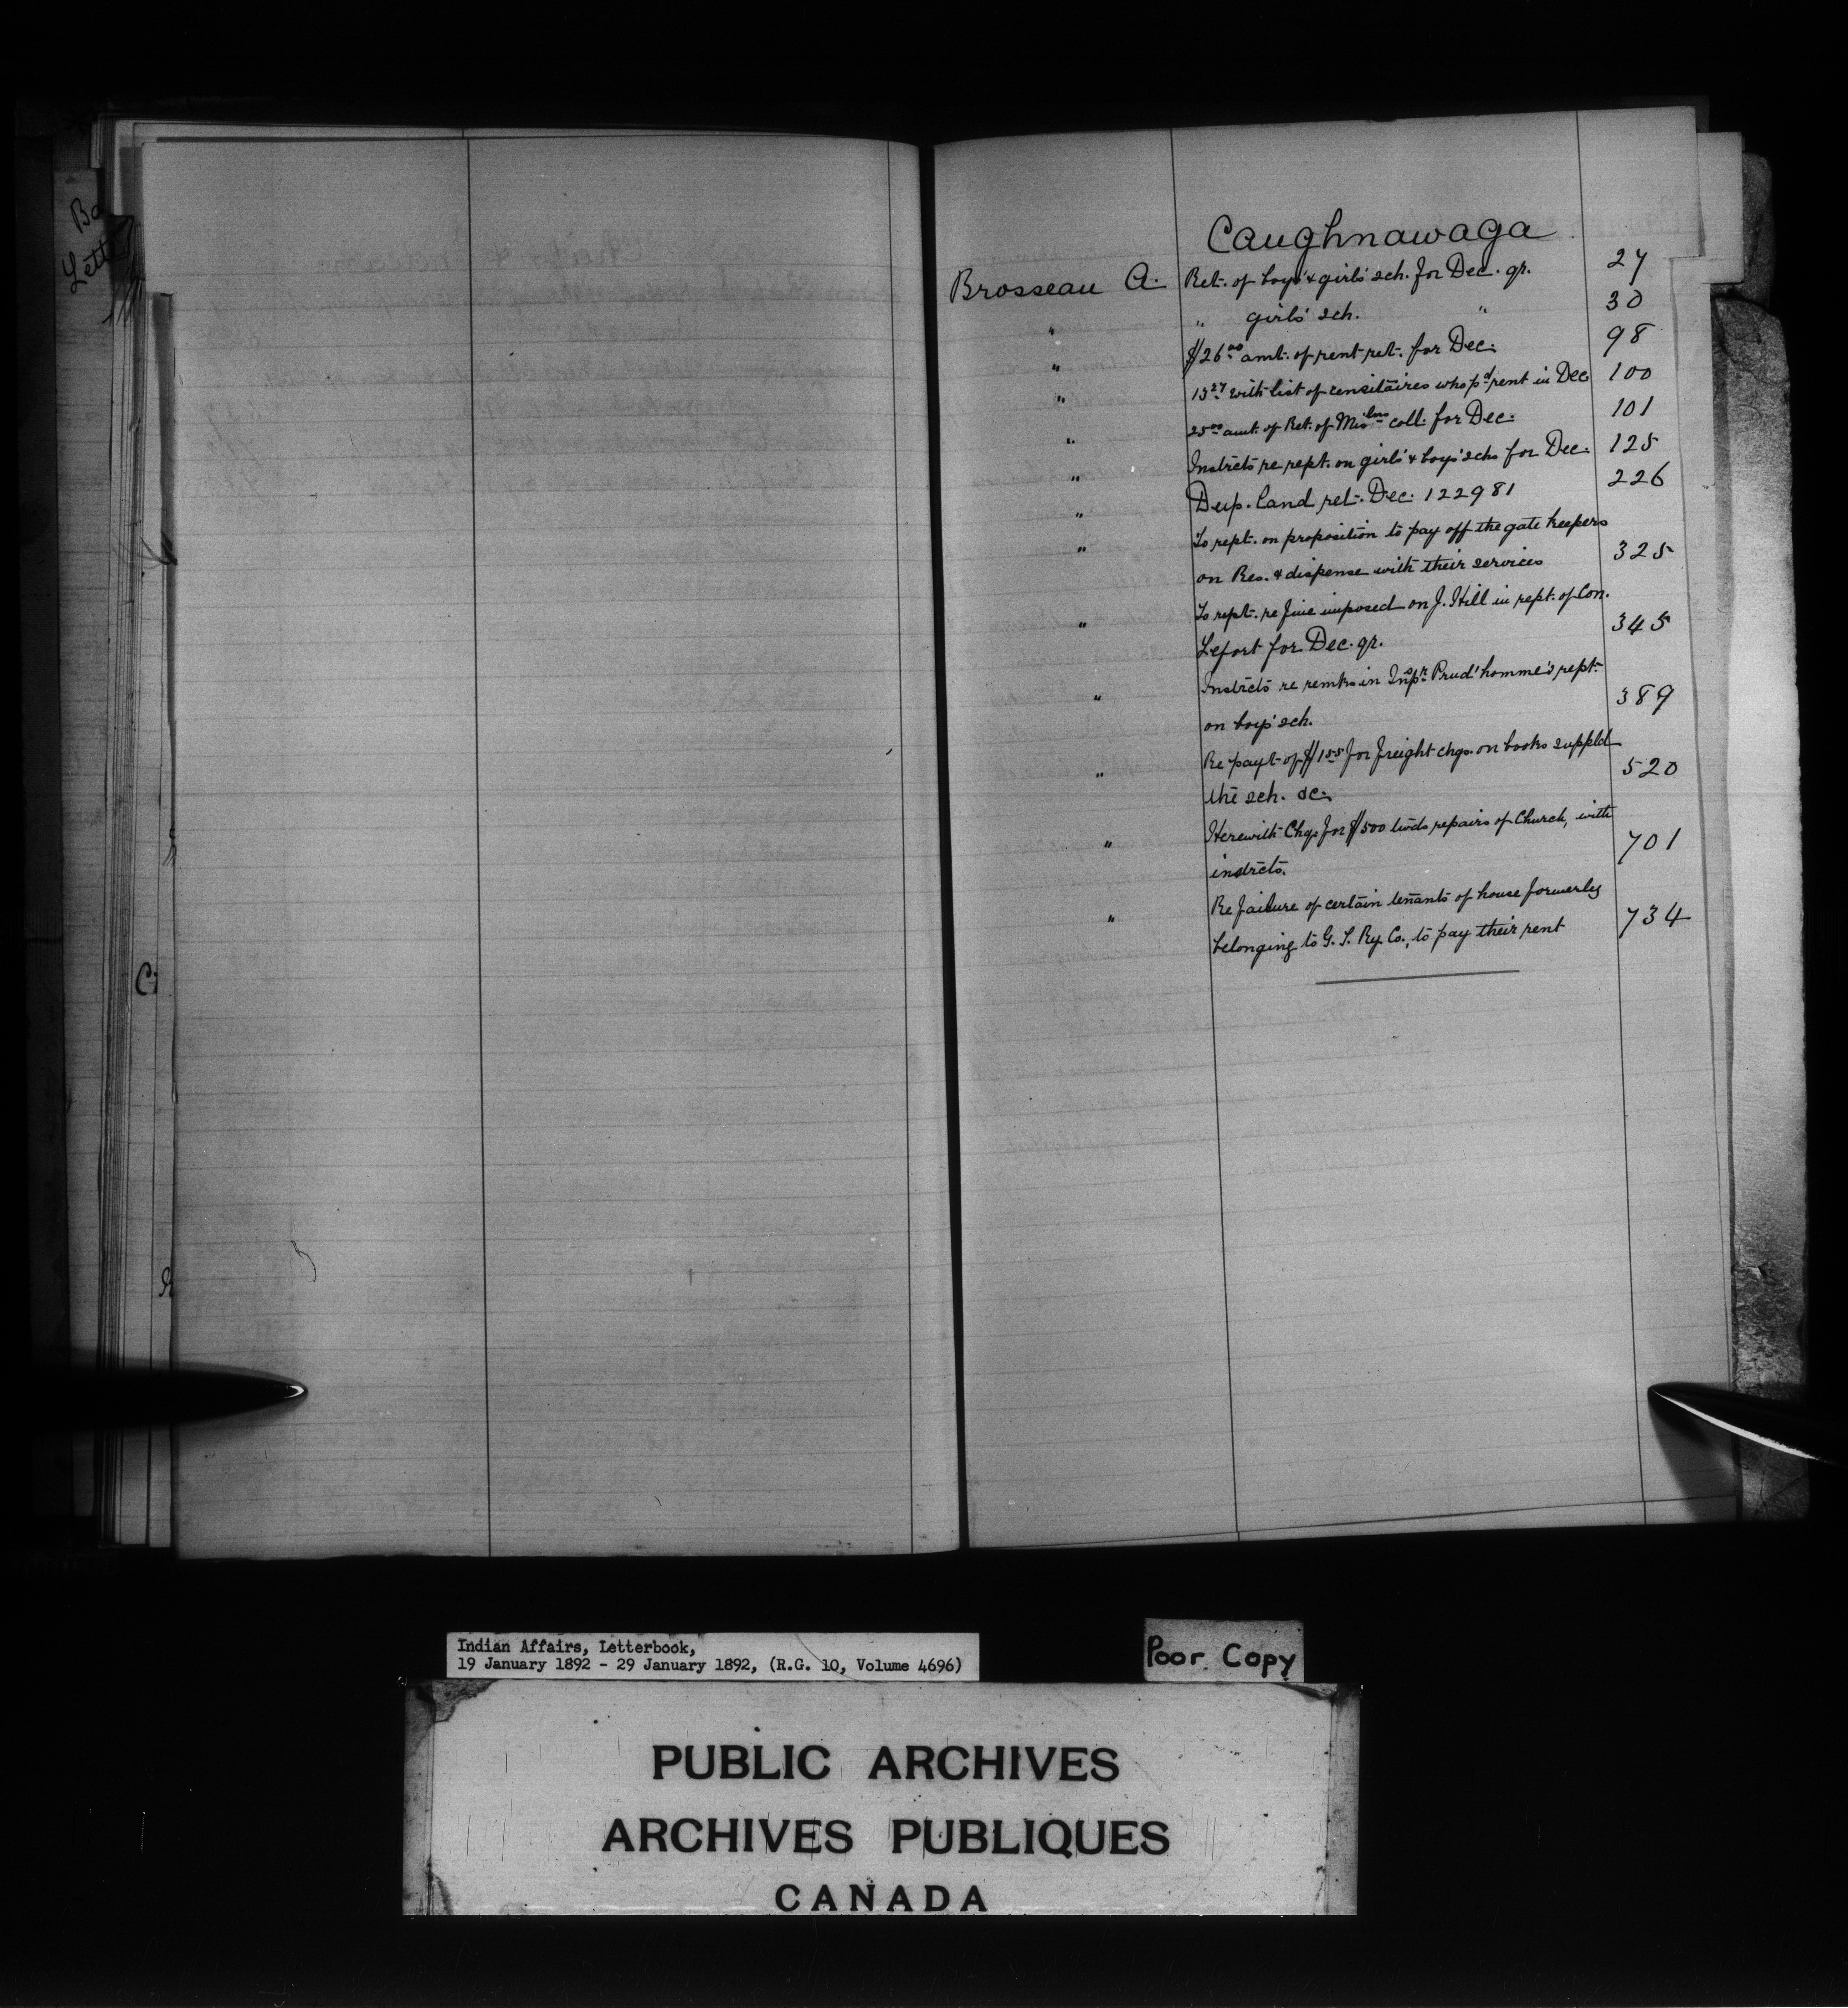 Ba
Lette
C
Caughnawaga
Brosseau A. Ret. of boys' & girls' sch. for Dec. qr. 27
" " girls' sch. " 30
" $126.00 amt. of rent ret. for Dec. 98
" 13.27 with list of censitaires who pd rent in Dec 100
" 25.00 amt. of Ret. of coll. for Dec. 101
" Instrcts re rept. on girls' & boys' schs for Dec. 125
" Dup. land ret. Dec. 122981 226
" To rept. on proposition to pay off the gate keepers
on Res. & dispense with their services 325
" To rept. re fine imposed on J. Hill in rept. of Con.
Lefort for Dec. qr. 345
" Instrcts re remks in Inspr. Prud'homme's rept.
on boys' sch. 389
" Re payt of $1.55 for freight chgs. on books suppld
the sch. &c. 520
" Herewith Chq. for $500 twds repairs of Church, with
instrcts. 701
" Re failure of certain tenants of house formerly
belonging to G. T. Ry. Co., to pay their rent 734
Indian Affairs, Letterbook,
19 January 1892 - 29 January 1892, (R.G. 10, Volume 4696)
Poor Copy
PUBLIC ARCHIVES
ARCHIVES PUBLIQUES
CANADA